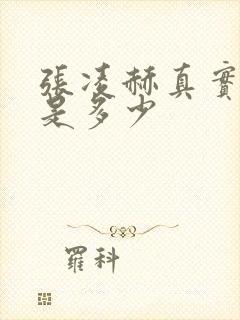 張凌赫真實
是多少
羅科